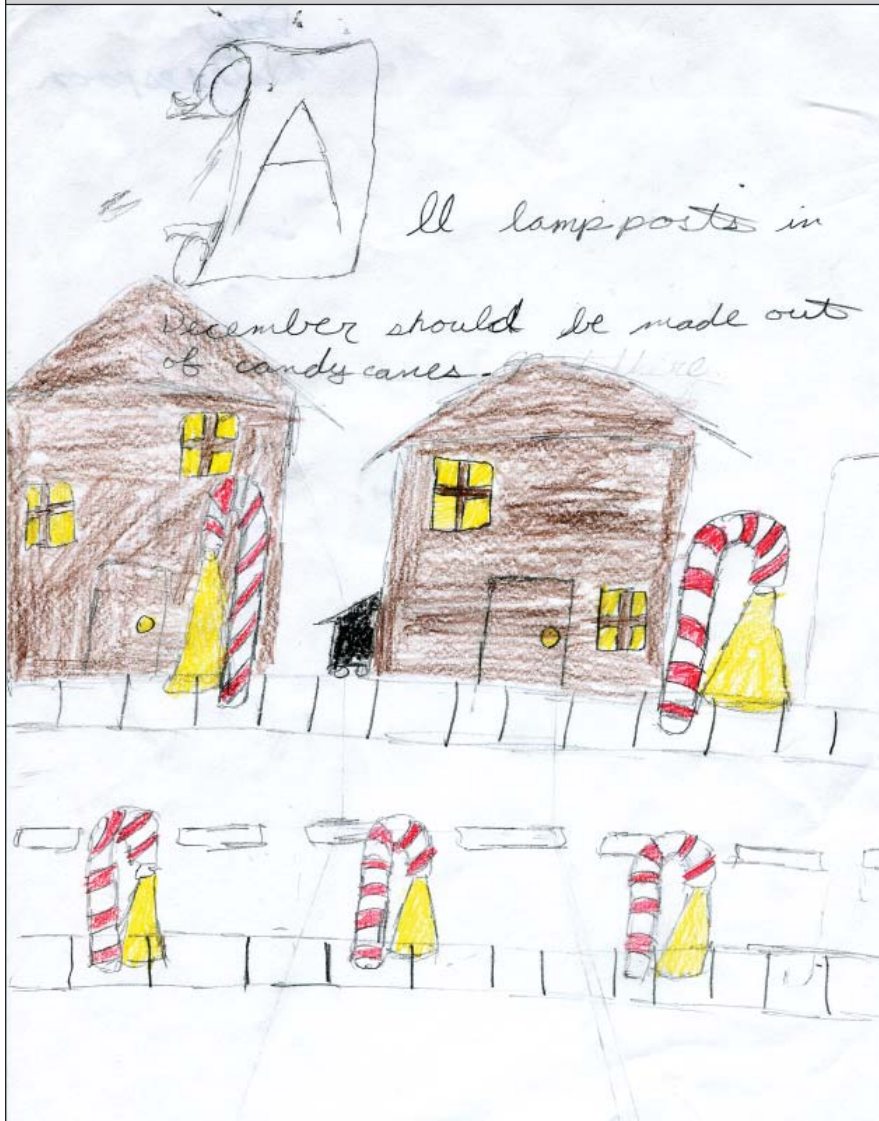 All lampposts in
December should be made out
of candy canes.